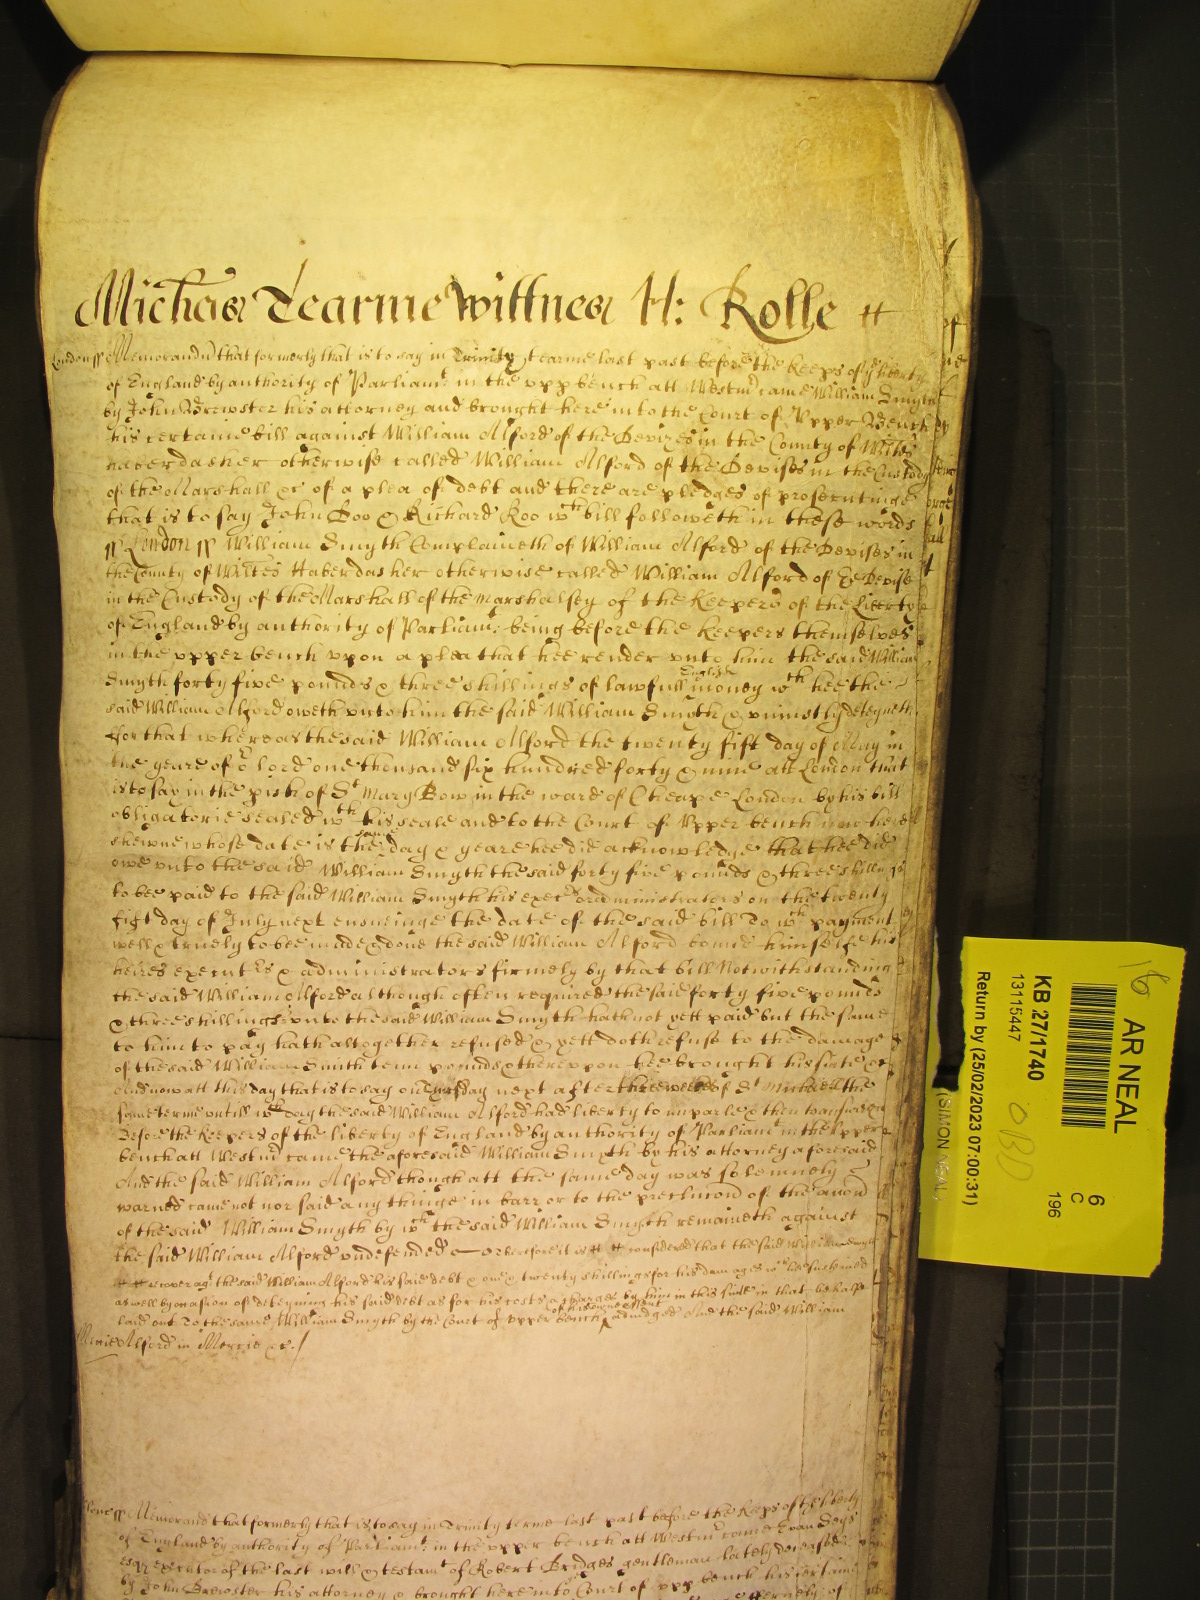 Michas Tearme Wittnes H: Rolle #
London ss Memorand that formerly that is to say in Trinity tearme last past before the Keeps of ye liberty
of England by authority of Parliamt in the upp bench att Westmr came William Smyth
by John Brewster his attorney and brought here into the Court of Upper Bench
his certaine bill against William Alford of the Devizes in the County of Wiltes
haberdasher otherwise called William Alford of the Devises in the Custody
of the Marshall &c of a plea of debt and there are pledges of prosecutinge
that is to say John Doo & Richard Roo wch bill followeth in these words
ss London ss William Smyth Complaineth of William Alford of the Devises in
the County of Wiltes Haberdasher otherwise called William Alford of ye Devises
in the Custody of the Marshall of the Marshalsey of the Keepers of the Liberty
of England by authority of Parliamt being before the Keepers themselves
in the upper bench upon a plea that hee render unto him the said William
Smyth forty five pounds & three shillings of lawfull English money wch hee the
said William Alford oweth unto him the said William Smyth & uniustly deteyneth
For that whereas the said William Alford the twenty fift day of May in
the yeare of or lord one thousand six hundred forty & nine att London that
is to say in the pish of St Mary Bow in the ward of Cheape London by his bill
obligatorie sealed wth his seale and to the Court of Upper bench now here
shewne whose date is the same day & yeare hee did acknowledge that hee did
owe unto the said William Smyth the said forty five pounds & three shillings
to bee paid to the said William Smyth his execrs or administrators on the twenty
fift day of July next ensueinge the date of the said bill To wch payment
well & truely to bee made & done the said William Alford bound himselfe his
heires executrs & administrators firmely by that bill Notwithstanding
the said William Alford although often required the said forty five pounds
& three shillings unto the said William Smyth hath not yett paid but the same
to him to pay hath altogether refused & yett doth refuse to the damage
of the said William Smith tenn pounds & thereupon hee brought his suite &c
And now att this day that is to say on day next after three weekes of St Michaell the
same terme untill wch day the said William Alford had liberty to imparle & then to answere &c
Before the Keepers of the liberty of England by authority of Parliamt in the Upper
bench att Westmr came the aforesaid William Smyth by his attorney aforesaid
And the said William Alford though att the same day was solemnely
warned came not nor said any thinge in barr or to the preclucon of the accon
of the said William Smyth by wch the said William Smyth remaineth against
the said William Alford undefended Therefore it is # # considered that the said William Smyth
# # recover agt the said William Alford his said debt & one & twenty shillings for his damages wch hee susteined
aswell by occasion of deteyning his said debt as for his costs & charges by him in this suite in that behalfe
laid out To the same William Smyth by the Court of upper bench of his owne assent adiudged And the said William
Mercie Alford in Mercie &c /
ss Memorand that formerly that is to say in Trinity terme last past before the Keeps of the liberty
of England by authority of Parliamt in the upper bench att Westmr came Evan Seys
esqr executor of the last will & testamt of Robert Bridges gentleman lately deceased
by John Brewster his attorney & brought here into Court of upp bench his certaine
AR NEAL
KB 27/1740
13115447
Return by (25/02/2023 07:00:31)
6
C
196
16
OBD
(SIMON NEAL)